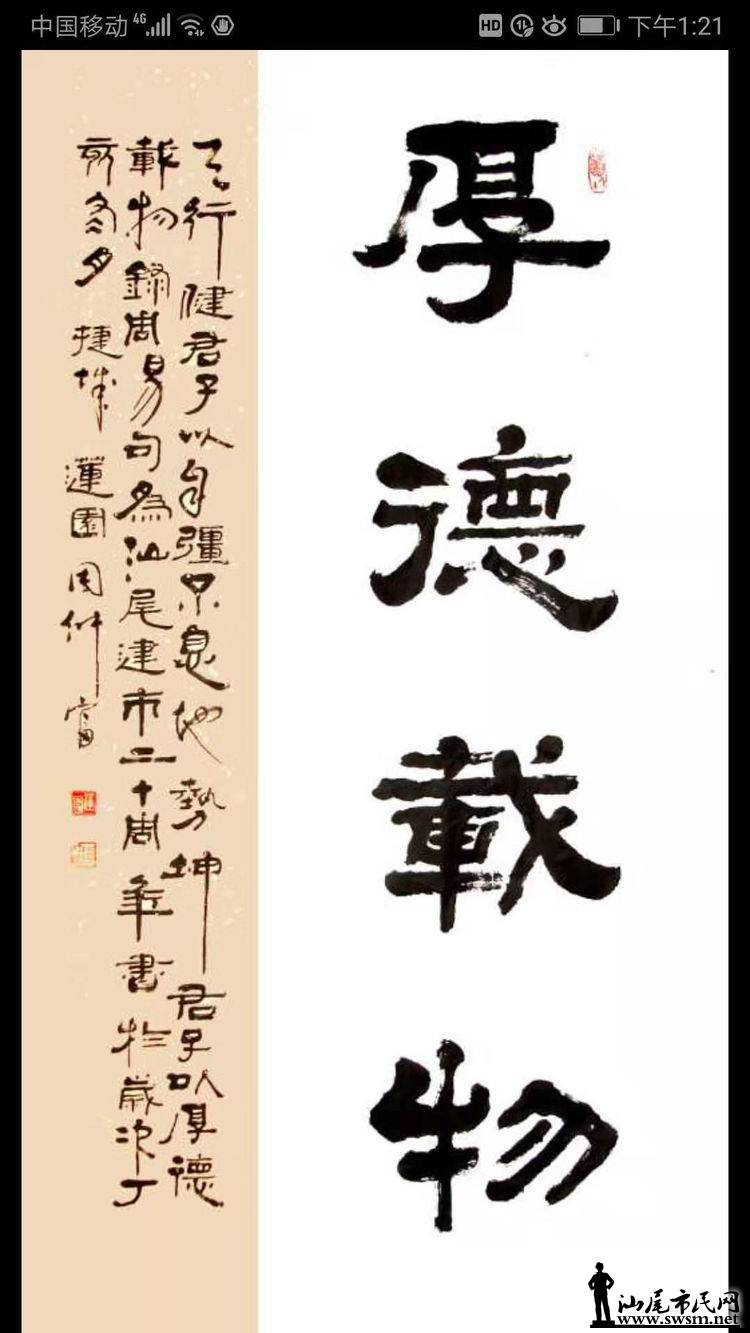 中国移动 4G HD 下午1:21
厚德載物
天行健君子以自彊不息地勢坤君子以厚德
載物錄周易句為汕尾建市二十周年書於歲次丁
亥冬夕 捷城 蓮園周仲富
汕尾市民网
www.swsm.net